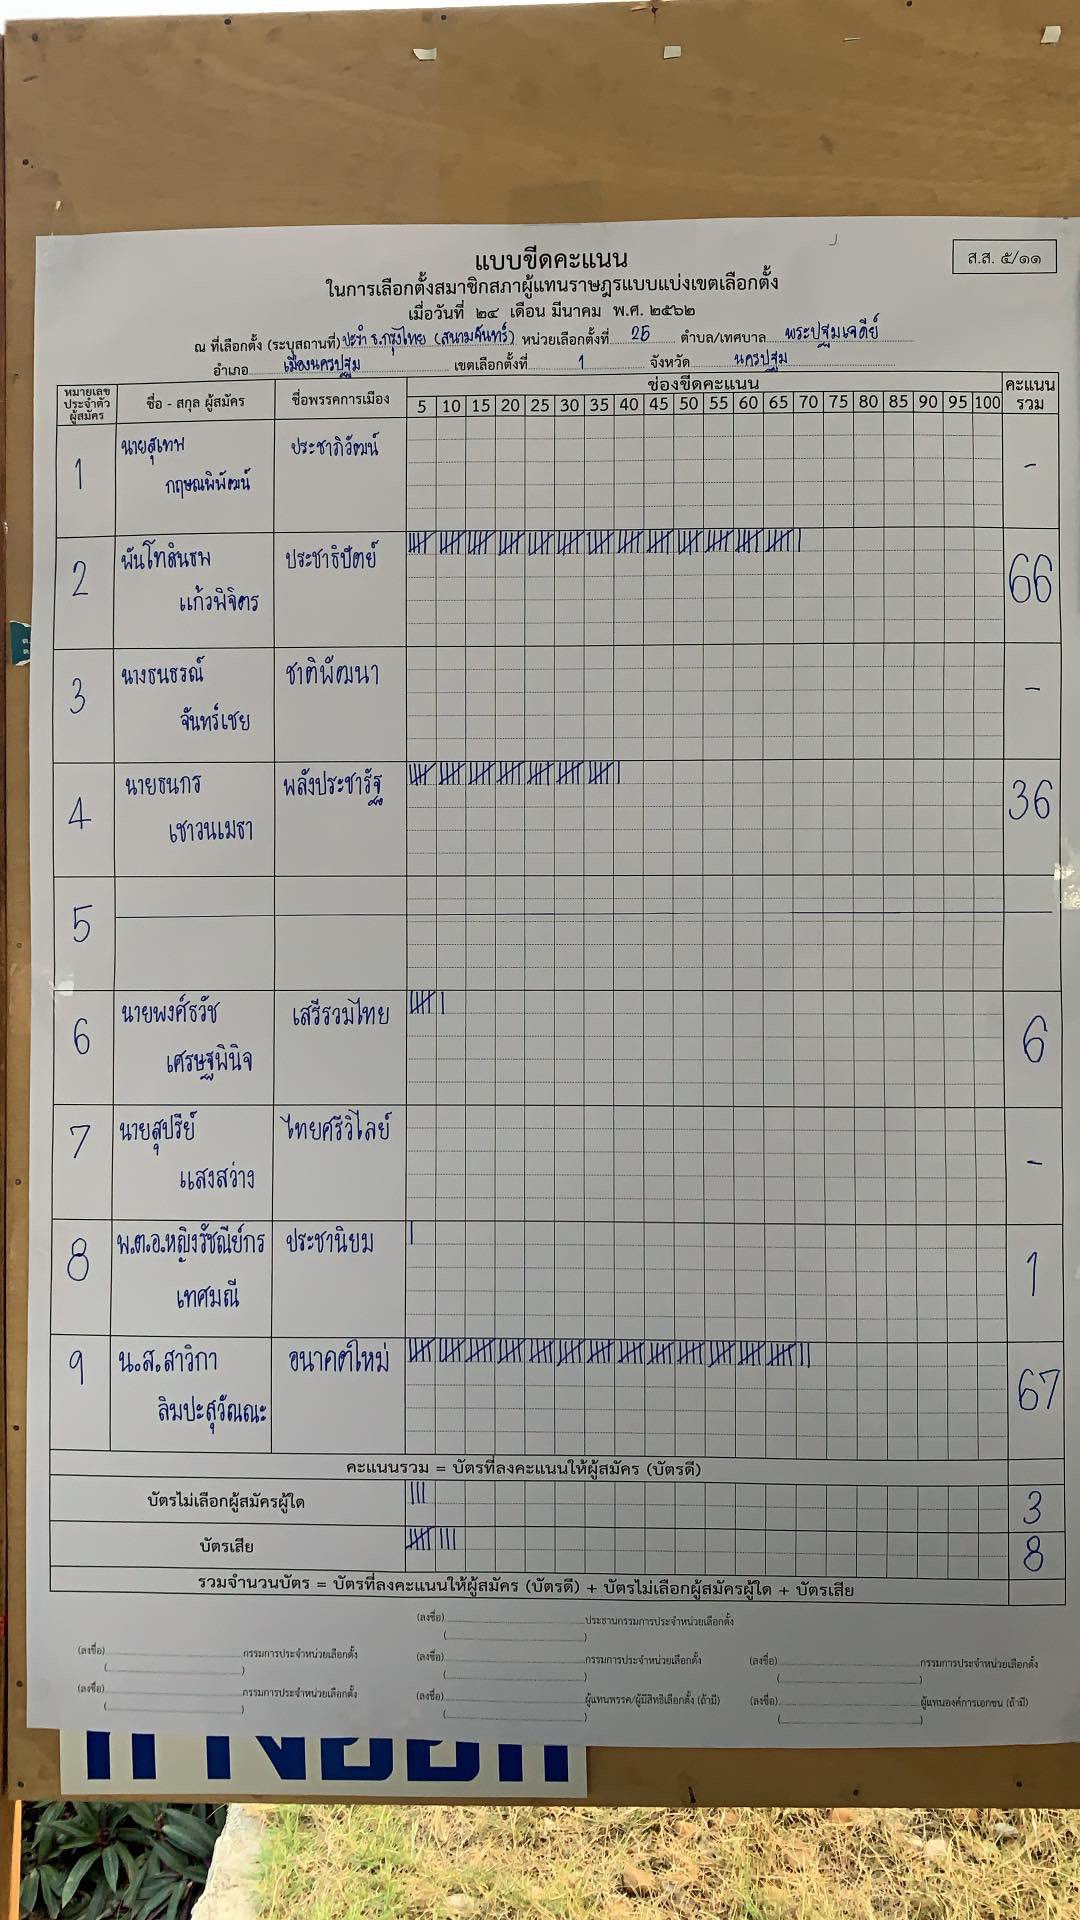 ส.ส. ๕/๑๑
แบบขีดคะแนน
ในการเลือกตั้งสมาชิกสภาผู้แทนราษฎรแบบแบ่งเขตเลือกตั้ง
เมื่อวันที่ ๒๔ เดือน มีนาคม พ.ศ. ๒๕๖๒
ณ ที่เลือกตั้ง (ระบุสถานที่) ปะรำ ธ.กรุงไทย (สนามจันทร์) หน่วยเลือกตั้งที่ 25 ตำบล/เทศบาล พระปฐมเจดีย์
อำเภอ เมืองนครปฐม เขตเลือกตั้งที่ 1 จังหวัด นครปฐม
หมายเลขประจำตัวผู้สมัคร ชื่อ - สกุล ผู้สมัคร ชื่อพรรคการเมือง ช่องขีดคะแนน คะแนนรวม
5 10 15 20 25 30 35 40 45 50 55 60 65 70 75 80 85 90 95 100
1 นายสุเทพ ประชาภิวัฒน์ -
กฤษณพิพัฒน์
2 พันโทสินธพ ประชาธิปัตย์ 66
แก้วพิจิตร
3 นางธนธรณ์ ชาติพัฒนา -
จันทร์เชย
4 นายธนกร พลังประชารัฐ 36
เชาวนเมธา
5
6 นายพงศ์ธวัช เสรีรวมไทย 6
เศรษฐพินิจ
7 นายสุปรีย์ ไทยศรีวิไลย์ -
แสงสว่าง
8 พ.ต.อ.หญิงรัชณีย์กร ประชานิยม 1
เทศมณี
9 น.ส.สาวิกา อนาคตใหม่ 67
ลิมปะสุวัณณะ
คะแนนรวม = บัตรที่ลงคะแนนให้ผู้สมัคร (บัตรดี)
บัตรไม่เลือกผู้สมัครผู้ใด 3
บัตรเสีย 8
รวมจำนวนบัตร = บัตรที่ลงคะแนนให้ผู้สมัคร (บัตรดี) + บัตรไม่เลือกผู้สมัครผู้ใด + บัตรเสีย
(ลงชื่อ) ประธานกรรมการประจำหน่วยเลือกตั้ง
( )
(ลงชื่อ) กรรมการประจำหน่วยเลือกตั้ง (ลงชื่อ) กรรมการประจำหน่วยเลือกตั้ง (ลงชื่อ) กรรมการประจำหน่วยเลือกตั้ง
( ) ( ) ( )
(ลงชื่อ) กรรมการประจำหน่วยเลือกตั้ง (ลงชื่อ) ผู้แทนพรรค/ผู้มีสิทธิเลือกตั้ง (ถ้ามี) (ลงชื่อ) ผู้แทนองค์การเอกชน (ถ้ามี)
( ) ( ) ( )